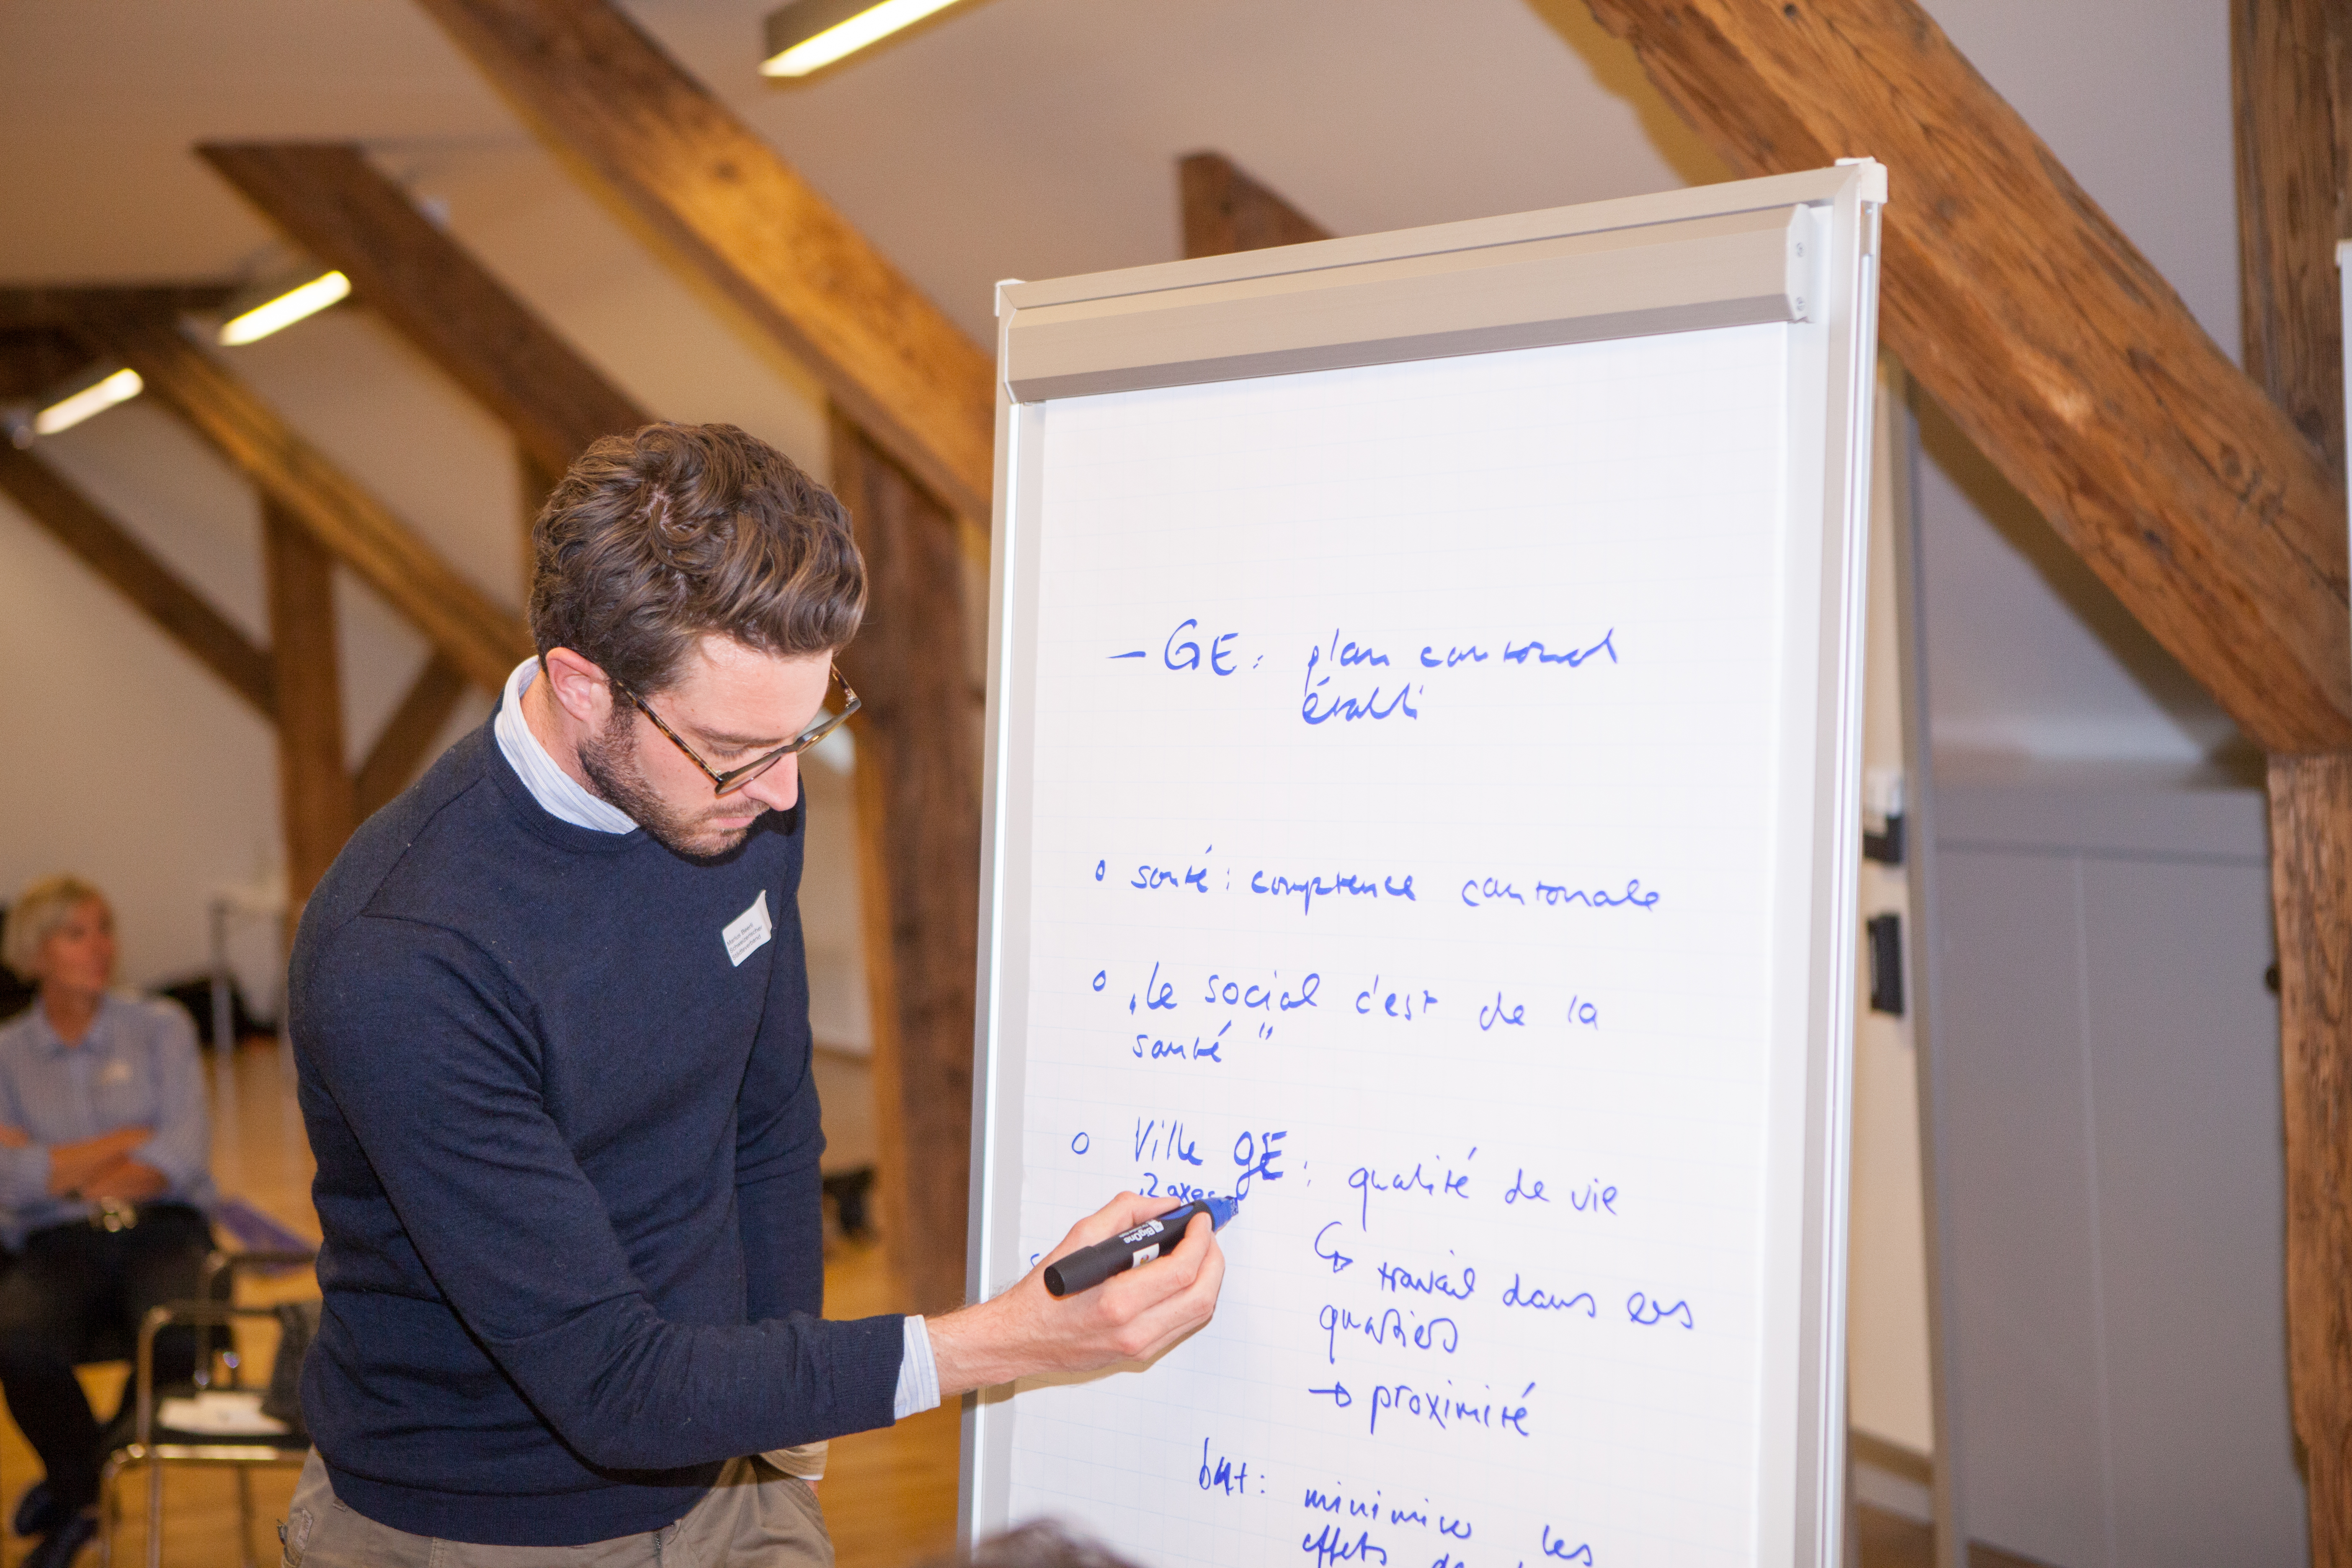 – GE : plan cantonal
établi
o santé : comptence cantonale
o „le social c'est de la
santé"
o Ville GE : qualité de vie
2 axes
↳ travail dans les
quartiers
→ proximité
but : minimiser les
effets de
BigOne